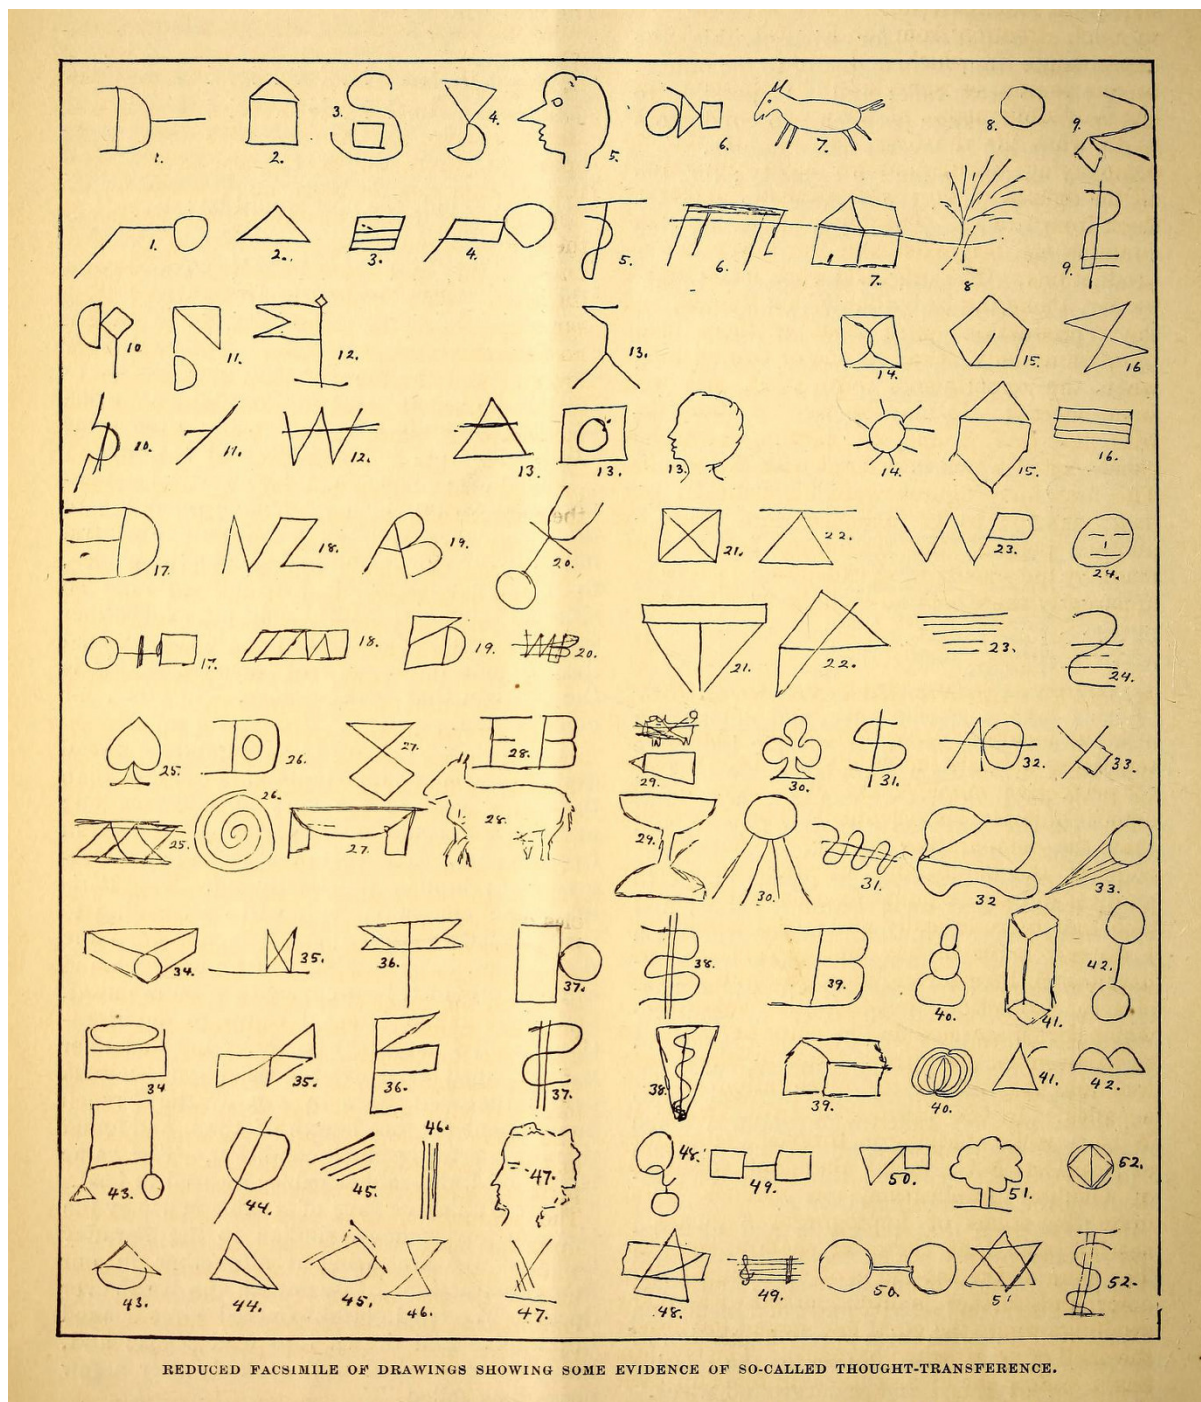 1. 2. 3. 4. 5. 6. 7. 8. 9.
1. 2. 3. 4. 5. 6. 7. 8 9.
10. 11. 12. 13. 14. 15. 16
10. 11. 12. 13. 13. 13. 14. 15. 16.
17. 18. 19. 20. 21. 22. 23. 24.
17. 18. 19. 20. 21. 22. 23. 24.
25. 26. 27. 28. 29. 30. 31. 32. 33.
25. 26. 27. 28. 29. 30. 31. 32 33.
34. 35. 36. 37. 38. 39. 40. 41. 42.
34 35. 36. 37. 38. 39. 40. 41. 42.
43. 44. 45. 46. 47. 48. 49. 50. 51. 52.
43. 44. 45. 46. 47. 48. 49. 50. 51 52.
REDUCED FACSIMILE OF DRAWINGS SHOWING SOME EVIDENCE OF SO-CALLED THOUGHT-TRANSFERENCE.